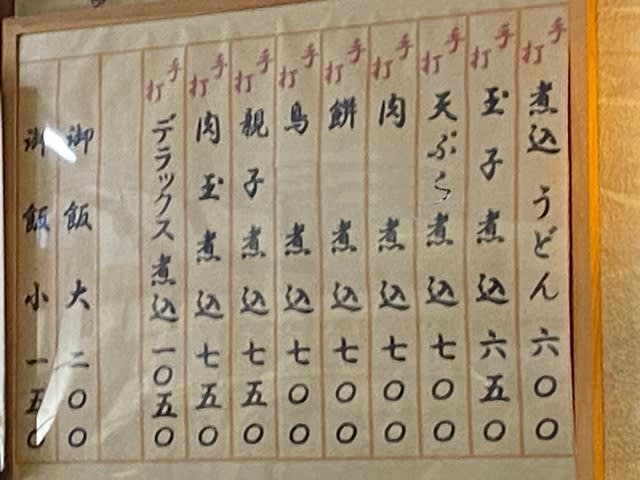 手打 煮込うどん 六〇〇
手打 玉子煮込 六五〇
手打 天ぷら煮込 七〇〇
手打 肉煮込 七〇〇
手打 餅煮込 七〇〇
手打 鳥煮込 七〇〇
手打 親子煮込 七五〇
手打 肉玉煮込 七五〇
手打 デラックス煮込 一〇五〇
御飯大 二〇〇
御飯小 一五〇